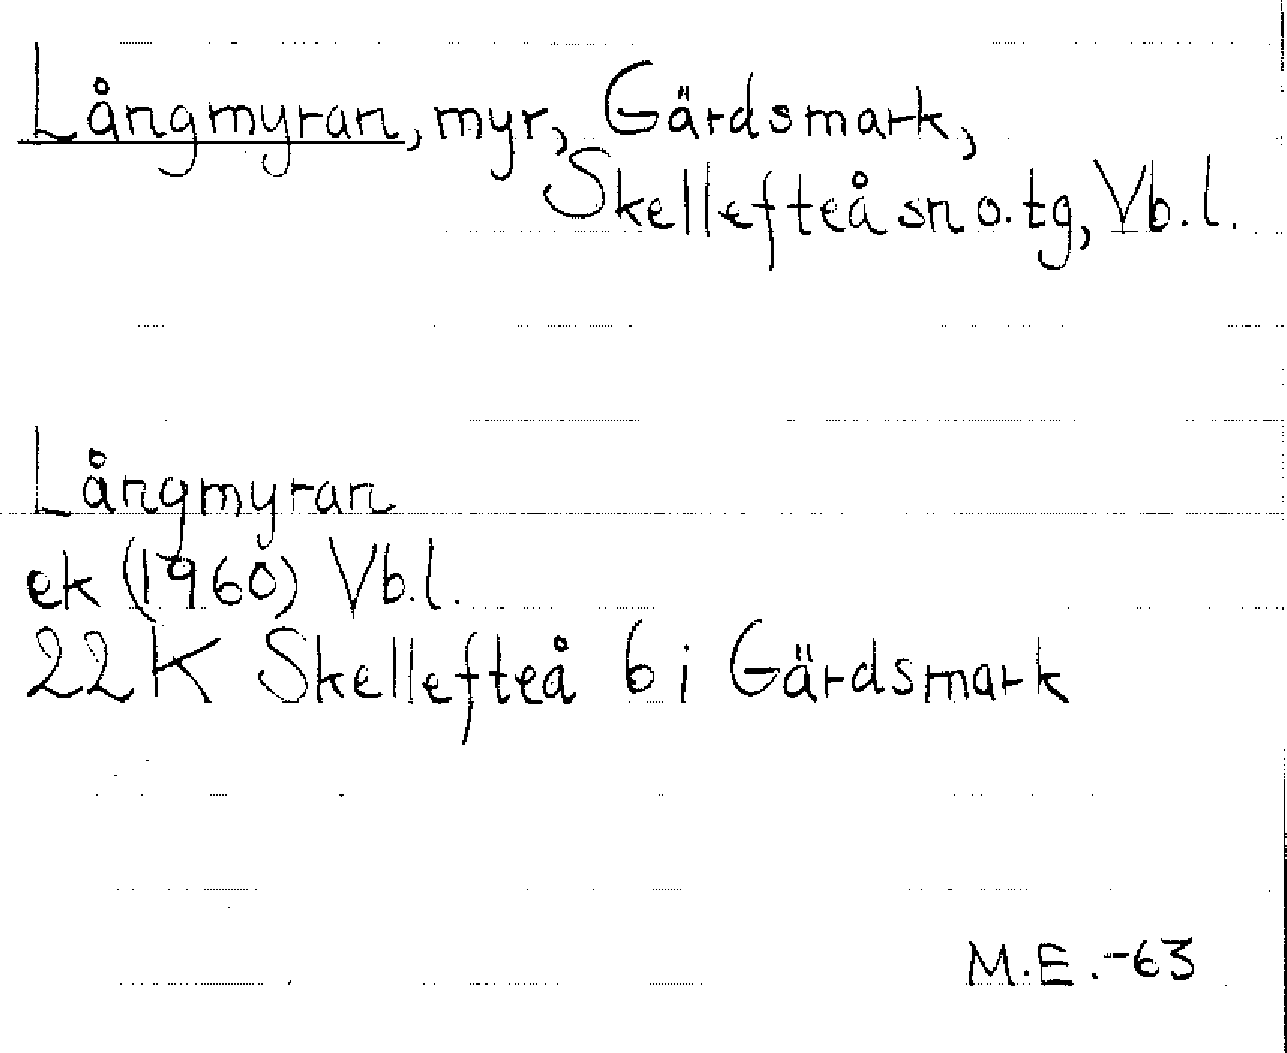 Långmyran, myr, Gärdsmark,
Skellefteå sn o. tg, Vb. l.
Långmyran
ek (1960) Vb. l.
22 K Skellefteå 6 i Gärdsmark
M.E. -63